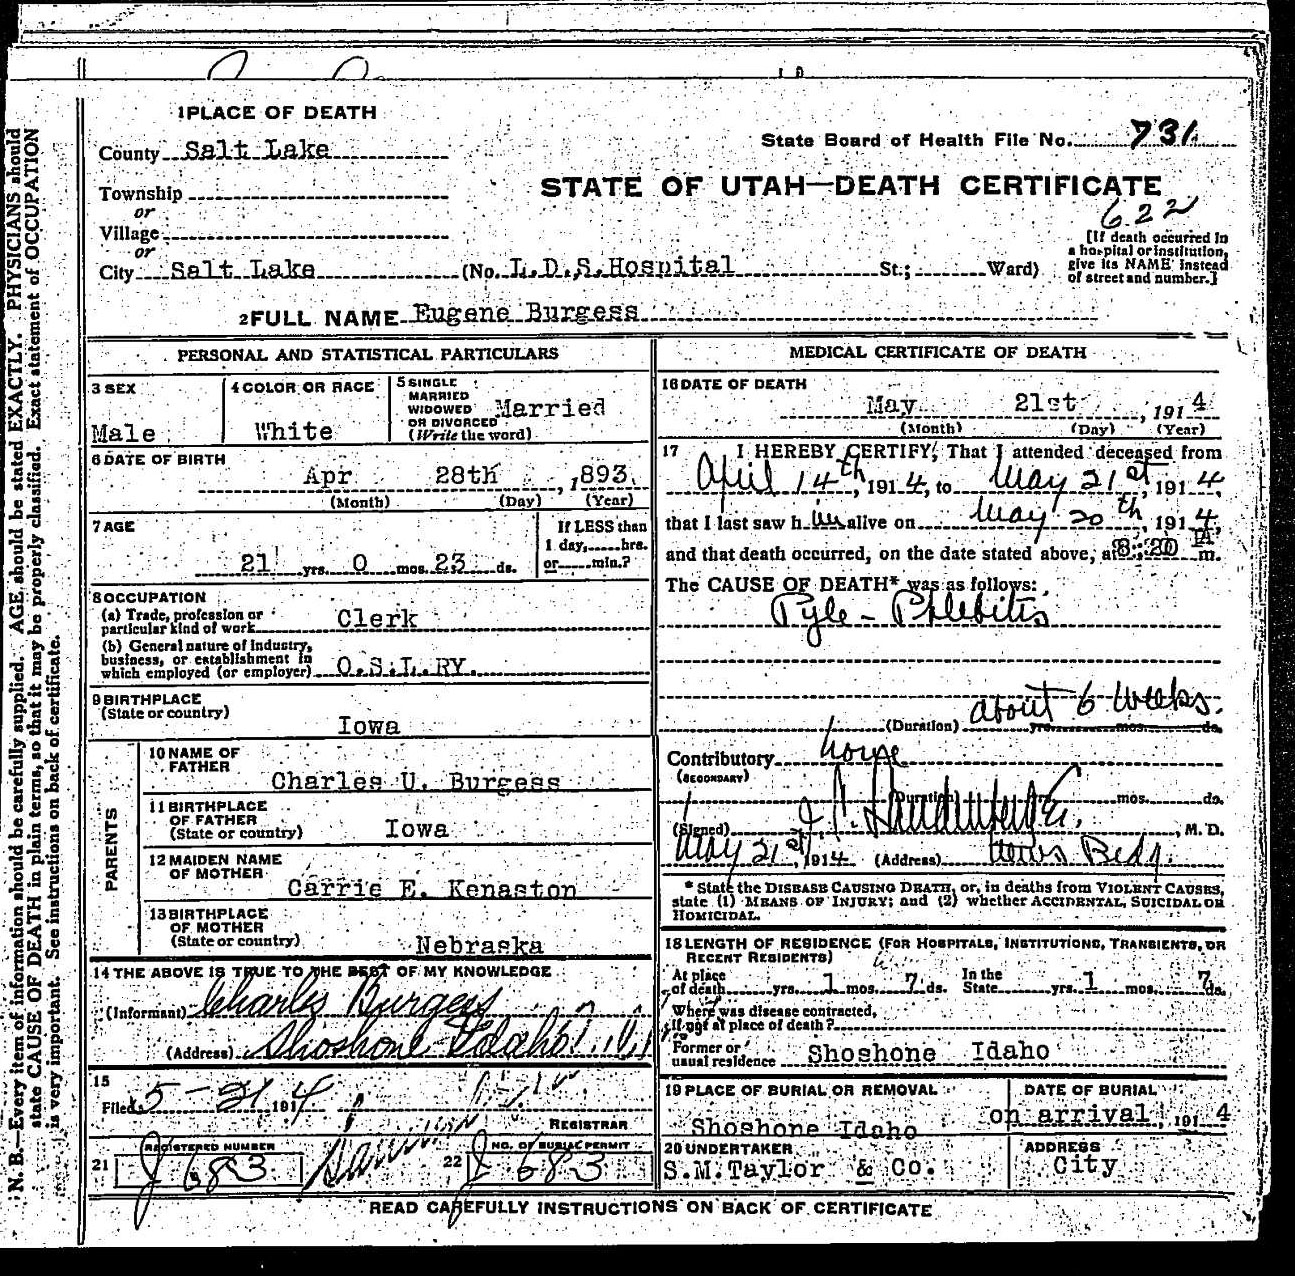 1 PLACE OF DEATH
County Salt Lake
State Board of Health File No. 731
Township
or
Village
or
City Salt Lake (No. L.D.S. Hospital St.; Ward)
STATE OF UTAH—DEATH CERTIFICATE
622
[If death occurred in
a hospital or institution,
give its NAME instead
of street and number.]
2 FULL NAME Eugene Burgess
PERSONAL AND STATISTICAL PARTICULARS
3 SEX
Male
4 COLOR OR RACE
White
5 SINGLE
MARRIED
WIDOWED
OR DIVORCED
(Write the word)
Married
6 DATE OF BIRTH
Apr 28th, 1893
(Month) (Day) (Year)
7 AGE
21 yrs. 0 mos. 23 ds.
If LESS than
1 day,......hrs.
or......min.?
8 OCCUPATION
(a) Trade, profession or
particular kind of work Clerk
(b) General nature of industry,
business, or establishment in
which employed (or employer) O.S.L.RY.
9 BIRTHPLACE
(State or country)
Iowa
PARENTS
10 NAME OF
FATHER
Charles U. Burgess
11 BIRTHPLACE
OF FATHER
(State or country)
Iowa
12 MAIDEN NAME
OF MOTHER
Carrie E. Kenaston
13 BIRTHPLACE
OF MOTHER
(State or country)
Nebraska
14 THE ABOVE IS TRUE TO THE BEST OF MY KNOWLEDGE
(Informant) Charles Burgess
(Address) Shoshone Idaho
15
Filed 5-21 1914
REGISTRAR
21 REGISTERED NUMBER
J 683
22 NO. OF BURIAL PERMIT
J 683
MEDICAL CERTIFICATE OF DEATH
16 DATE OF DEATH
May 21st, 1914
(Month) (Day) (Year)
17 I HEREBY CERTIFY, That I attended deceased from
April 14th, 1914, to May 21st, 1914,
that I last saw him alive on May 20th, 1914,
and that death occurred, on the date stated above, at 8:20 A m.
The CAUSE OF DEATH* was as follows:
Pyle-Phlebitis
about 6 weeks.
(Duration) yrs. mos. ds.
Contributory
(SECONDARY)
(Duration) mos. ds.
(Signed) , M. D.
May 21st, 1914 (Address)
* State the DISEASE CAUSING DEATH, or, in deaths from VIOLENT CAUSES,
state (1) MEANS OF INJURY; and (2) whether ACCIDENTAL, SUICIDAL OR
HOMICIDAL.
18 LENGTH OF RESIDENCE (FOR HOSPITALS, INSTITUTIONS, TRANSIENTS, OR
RECENT RESIDENTS)
At place
of death yrs. 1 mos. 7 ds. In the
State yrs. 1 mos. 7 ds.
Where was disease contracted,
if not at place of death?
Former or
usual residence Shoshone Idaho
19 PLACE OF BURIAL OR REMOVAL
Shoshone Idaho
DATE OF BURIAL
on arrival, 1914
20 UNDERTAKER
S.M.Taylor & Co.
ADDRESS
City
READ CAREFULLY INSTRUCTIONS ON BACK OF CERTIFICATE
N. B.—Every item of information should be carefully supplied. AGE should be stated EXACTLY. PHYSICIANS should
state CAUSE OF DEATH in plain terms, so that it may be properly classified. Exact statement of OCCUPATION
is very important. See instructions on back of certificate.